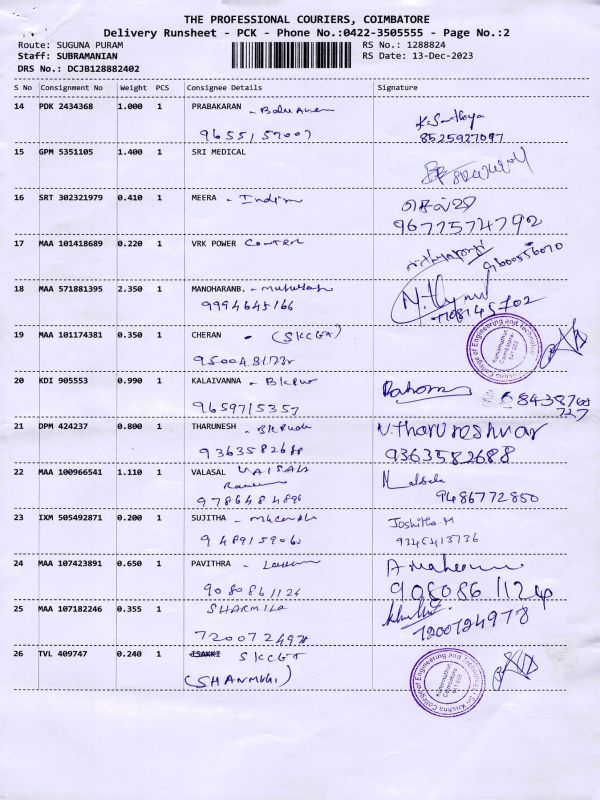 THE PROFESSIONAL COURIERS, COIMBATORE
Delivery Runsheet - PCK - Phone No.:0422-3505555 - Page No.:2
Route: SUGUNA PURAM RS No.: 1288824
Staff: SUBRAMANIAN RS Date: 13-Dec-2023
DRS No.: DCJB128882402
S No Consignment No Weight PCS Consignee Details Signature
14 PDK 2434368 1.000 1 PRABAKARAN
9655157007
8525927097
15 GPM 5351105 1.400 1 SRI MEDICAL
16 SRT 302321979 0.410 1 MEERA - Indira
9677574792
17 MAA 101418689 0.220 1 VRK POWER CONTROL
9600556070
18 MAA 571881395 2.350 1 MANOHARANB.
9994645166
19 MAA 101174381 0.350 1 CHERAN - (SKCET)
Sri Krishna College of Engineering and Technology
Kuniamuthur
Coimbatore
20 KDI 905553 0.990 1 KALAIVANNA - BKPur
9659715357
21 DPM 424237 0.800 1 THARUNESH - BK Pudur
V.Tharuneshwar
9363582688
9363582688
22 MAA 100966541 1.110 1 VALASAL VAISALI
9786484896
9486772850
23 IXM 505492871 0.200 1 SUJITHA
Joshitha M
9489159060
9345413736
24 MAA 107423891 0.650 1 PAVITHRA
A Maheswari
9080861124
908086 1124
25 MAA 107182246 0.355 1 SHARMILA
7200724978
7200724978
26 TVL 409747 0.240 1 ISAKKI SKCET
(SHANMUGI)
Sri Krishna College of Engineering and Technology
Kuniamuthur
Coimbatore